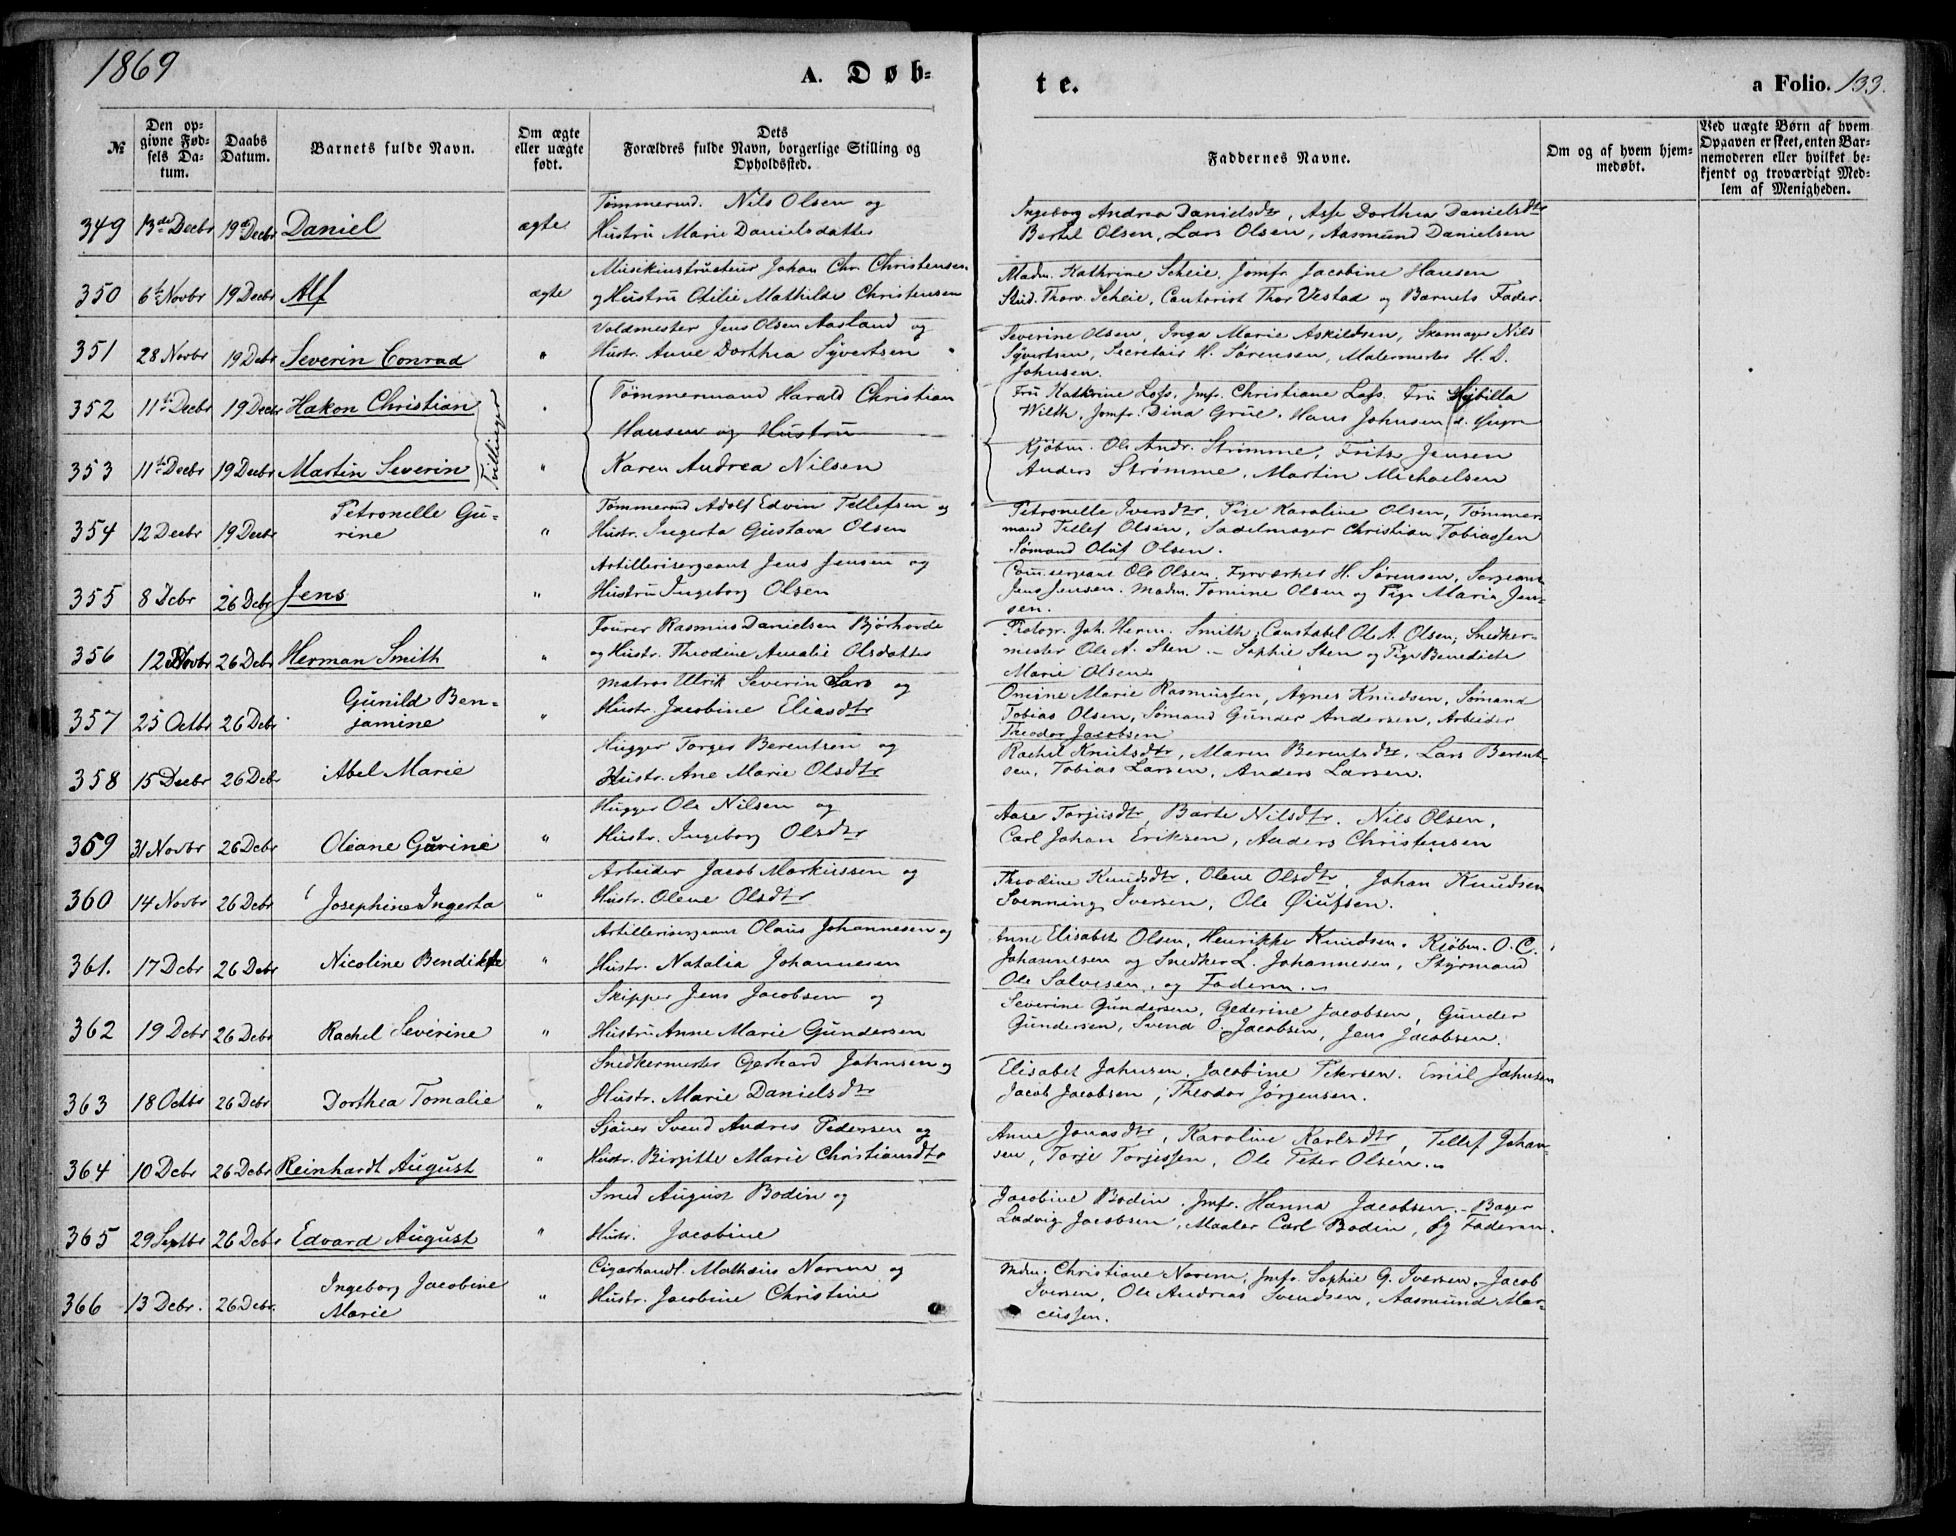 1869
A. Døb-
te.
a Folio. 133.
№
Den op-
givne Fød-
sels Da-
tum.
Daabs
Datum.
Barnets fulde Navn.
Om ægte
eller uægte
født.
Dets
Forældres fulde Navn, borgerlige Stilling og
Opholdssted.
Faddernes Navne.
Om og af hvem hjem-
medøbt.
Ved uægte Børn af hvem
Opgaven er skeet, enten Bar-
nemoderen eller hvilket be-
kjendt og troværdigt Med-
lem af Menigheden.
349 13de Decbr 19de Decbr Daniel ægte
Tømmermd. Nils Olsen og
Hustru Marie Danielsdatter
Ingeborg Andrea Danielsdtr, Asse Dorthea Danielsdtr
Bertel Olsen, Lars Olsen, Aasmund Danielsen
350 6te Novbr 19 Decbr Alf ægte
Musikinstructeur Johan Chr. Christensen
og Hustru Otilie Mathilde Christensen
Madm. Kathrine Scheie, Jomfr Jacobine Hansen
Stud. Thorv. Scheie, Cantorist Thor Vestad og Barnets Fader.
351 28 Novbr 19 Debr Severin Conrad "
Voldmester Jens Olsen Aasland og
Hustr. Anne Dorthea Syvertsen
Severine Olsen, Inga Marie Askildsen, Skomager Nils
Syvertsen, Secretair H. Sørensen, Malermester H. D.
Johnsen.
352 11te Decbr 19 Decbr Hakon Christian "
Tvillinger
Tømmermand Harald Christian
Hansen og Hustru
Fru Kathrine Lofs, Jmf. Christiane Lofs. Fru Sybilla
Wilth, Jomfr. Dina Grue. Hans Johnsen
353 11te Decbr 19 Decbr Martin Severin "
Karen Andrea Nilsen
Kjøbm. Ole Andr. Strømme, Fritz Jensen
Anders Strømme, Martin Michaelsen
354 12 Decbr 19 Decbr Petronelle Gu-
rine "
Tømmermd Adolf Edvin Tellefsen og
Hustr. Ingerta Gustava Olsen
Petronelle Iversdtr, Pige Karoline Olsen, Tømmer-
mand Tellef Olsen, Sadelmager Christian Tobiassen
Sømand Oluf Olsen.
355 8 Debr 26 Debr Jens "
Artillerisergeant Jens Jensen og
Hustru Ingeborg Olsen
Com.sergeant Ole Olsen. Fyrværker H. Sørensen, Sergeant
Jens Jensen. Madm. Tomine Olsen og Pige Maria Jen-
sen.
356 12 Novbr 26 Debr Herman Smith "
Fourer Rasmus Danielsen Bjørhovde
og Hustr. Theodine Amalie Olsdatter
Fotogr. Joh. Herm. Smith, Constabel Ole A. Olsen, Snedker-
mester Ole A. Sten. - Sophie Sten og Pige Benedicte
Marie Olsen
357 25 Octbr 26 Debr Gunild Ben-
jamine "
Matros Ulrik Severin Lars og
Hustr. Jacobine Eliasdtr
Omine Marie Rasmussen, Agnes Knudsen, Sømand
Tobias Olsen, Sømand Gunder Andersen, Arbeider
Theodor Jacobsen
358 15 Decbr 26 Debr Abel Marie
Hugger Torges Berentsen og
Hustr. Ane Marie Olsdtr
Rachel Knutsdtr, Maren Berentsdtr. Lars Berent-
sen, Tobias Larsen, Anders Larsen.
359 31 Novbr 26 Debr Oleane Gurine "
Hugger Ole Nilsen og
Hustr. Ingeborg Olsdtr
Aase Torjusdtr, Barte Nilsdtr. Nils Olsen,
Carl Johan Eriksen, Anders Christensen
360 14 Novbr 26 Debr Josephine Ingerta "
Arbeider Jacob Markussen og
Hustr. Olene Olsdtr
Theodine Knudsdtr, Olene Olsdtr, Johan Knudsen
Svenning Iversen, Ole Øiufsen.
361. 17 Debr 26 Debr Nicoline Bendikte "
Artillerisergeant Olaus Johannesen og
Hustr. Natalia Johannesen
Anne Elisabet Olsen, Henrikke Knudsen. Kjøbm. O. C.
Johannesen og Snedker L. Johannesen, Styrmand
Ole Salvesen, og Faderen.
362 19 Debr 26 Debr Rachel Severine "
Skipper Jens Jacobsen og
Hustru Anne Marie Gundersen
Severine Gundersen, Gederine Jacobsen, Gunder
Gundersen, Svend O. Jacobsen, Jens Jacobsen.
363 18 Octbr 26 Debr Dorthea Tomalie "
Snedkermester Gerhard Johnsen og
Hustr. Marie Danielsdtr
Elisabet Johnsen, Jacobine Petersen. Emil Johnsen
Jacob Jacobsen, Theodor Jørgensen.
364 10 Debr 26 Debr Reinhardt August "
Sjøver Svend Andres Pedersen og
Hustr. Birgitte Marie Christiansdtr
Anne Jonasdtr, Karoline Karlsdtr, Tellef Johan-
sen, Torje Torjessen, Ole Peter Olsen.
365 29 Septbr 26 Debr Edvard August "
Smed August Bodin og
Hustr. Jacobine
Jacobine Bodin. Jmfr. Hanna Jacobsen. - Bager
Ludvig Jacobsen, Maaler Carl Bodin, og Faderen.
366 13 Debr. 26 Debr. Ingeborg Jacobine
Marie "
Cigarhandl. Mathæus Norem og
Hustr. Jacobine Christine
Mdm. Christiane Norem, Jmfr. Sophie G. Iversen, - Jacob
Iversen, Ole Andreas Svendsen, Aasmund Mar-
cussen.